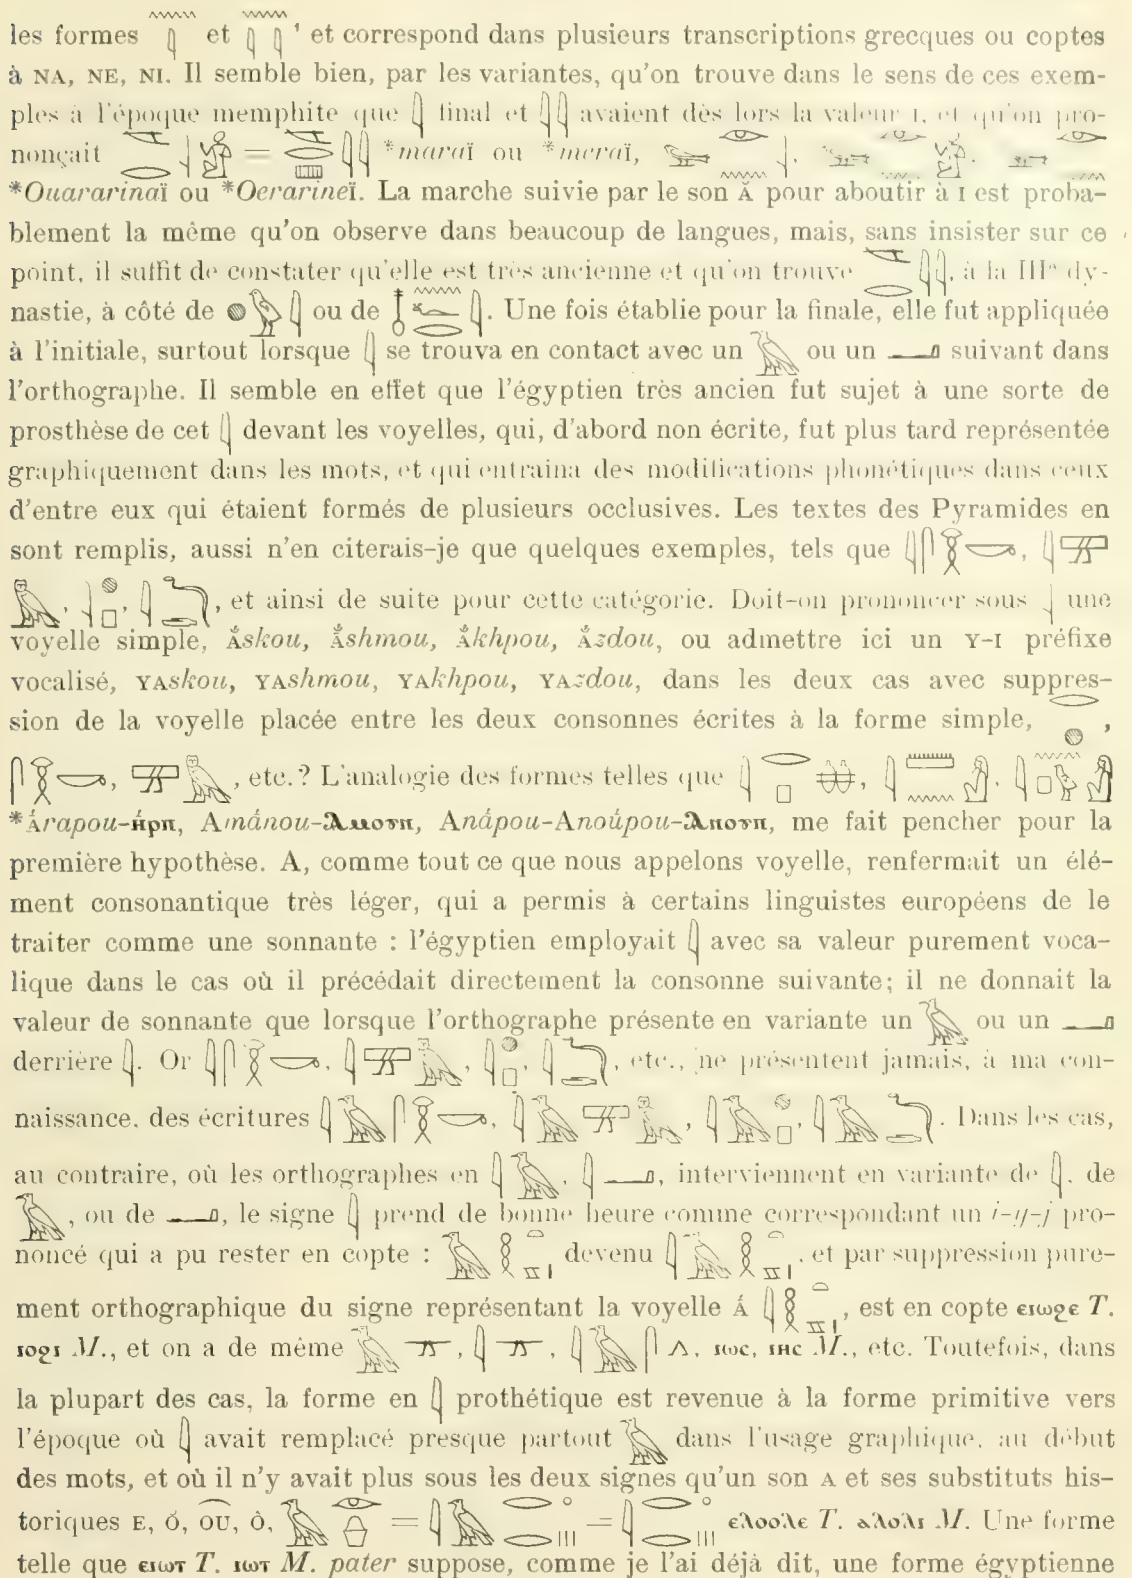 les formes 𓈖𓇋 et 𓈖𓇋𓇋, et correspond dans plusieurs transcriptions grecques ou coptes
à NA, NE, NI. Il semble bien, par les variantes, qu'on trouve dans le sens de ces exem-
ples à l'époque memphite que 𓇋 final et 𓇋𓇋 avaient dès lors la valeur I, et qu'on pro-
nonçait = *maraï ou *meraï,
*Ouararinaï ou *Oerarineï. La marche suivie par le son Ǎ pour aboutir à I est proba-
blement la même qu'on observe dans beaucoup de langues, mais, sans insister sur ce
point, il suffit de constater qu'elle est très ancienne et qu'on trouve 𓇋𓇋, à la IIIe dy-
nastie, à côté de 𓐍𓅱𓇋 ou de 𓄤𓈖𓆑𓂋𓇋. Une fois établie pour la finale, elle fut appliquée
à l'initiale, surtout lorsque 𓇋 se trouva en contact avec un 𓄿 ou un 𓂝 suivant dans
l'orthographe. Il semble en effet que l'égyptien très ancien fut sujet à une sorte de
prosthèse de cet 𓇋 devant les voyelles, qui, d'abord non écrite, fut plus tard représentée
graphiquement dans les mots, et qui entraina des modifications phonétiques dans ceux
d'entre eux qui étaient formés de plusieurs occlusives. Les textes des Pyramides en
sont remplis, aussi n'en citerais-je que quelques exemples, tels que 𓇋𓋴𓎛𓎡, 𓇋𓈝
𓅓, 𓇋𓐍𓊪, 𓇋𓊃𓆓, et ainsi de suite pour cette catégorie. Doit-on prononcer sous 𓇋 une
voyelle simple, Åskou, Åshmou, Åkhpou, Åzdou, ou admettre ici un Y-I préfixe
vocalisé, YAskou, YAshmou, YAkhpou, YAzdou, dans les deux cas avec suppres-
sion de la voyelle placée entre les deux consonnes écrites à la forme simple, 𓂋𓐍,
𓋴𓎛𓎡, 𓈝𓅓, etc.? L'analogie des formes telles que 𓇋𓂋𓊪, 𓇋𓏠𓈖𓀭, 𓇋𓈖𓊪𓅱𓀭
*Árapou-ⲏⲣⲡ, Amánou-ⲁⲙⲟⲩⲛ, Anápou-Anoúpou-ⲁⲛⲟⲩⲡ, me fait pencher pour la
première hypothèse. A, comme tout ce que nous appelons voyelle, renfermait un élé-
ment consonantique très léger, qui a permis à certains linguistes européens de le
traiter comme une sonnante : l'égyptien employait 𓇋 avec sa valeur purement voca-
lique dans le cas où il précédait directement la consonne suivante; il ne donnait la
valeur de sonnante que lorsque l'orthographe présente en variante un 𓄿 ou un 𓂝
derrière 𓇋. Or 𓇋𓋴𓎛𓎡, 𓇋𓈝𓅓, 𓇋𓐍𓊪, 𓇋𓊃𓆓, etc., ne présentent jamais, à ma con-
naissance, des écritures 𓇋𓄿𓋴𓎛𓎡, 𓇋𓄿𓈝𓅓, 𓇋𓄿𓐍𓊪, 𓇋𓄿𓊃𓆓. Dans les cas,
au contraire, où les orthographes en 𓇋𓄿, 𓇋𓂝, interviennent en variante de 𓇋, de
𓄿, ou de 𓂝, le signe 𓇋 prend de bonne heure comme correspondant un i-y-j pro-
noncé qui a pu rester en copte : 𓄿𓎛𓏏𓈅𓏤 devenu 𓇋𓄿𓎛𓏏𓈅𓏤, et par suppression pure-
ment orthographique du signe représentant la voyelle Á 𓇋𓎛𓏏𓈅𓏤, est en copte ⲉⲓⲱϩⲉ T.
ⲓⲟϩⲓ M., et on a de même 𓄿, 𓇋, 𓇋𓄿𓋴𓂻, ⲓⲱⲥ, ⲓⲏⲥ M., etc. Toutefois, dans
la plupart des cas, la forme en 𓇋 prothétique est revenue à la forme primitive vers
l'époque où 𓇋 avait remplacé presque partout 𓄿 dans l'usage graphique, au début
des mots, et où il n'y avait plus sous les deux signes qu'un son A et ses substituts his-
toriques E, Ó, OU, Ô, = = ⲉⲗⲟⲟⲗⲉ T. ⲁⲗⲟⲗⲓ M. Une forme
telle que ⲉⲓⲱⲧ T. ⲓⲱⲧ M. pater suppose, comme je l'ai déjà dit, une forme égyptienne